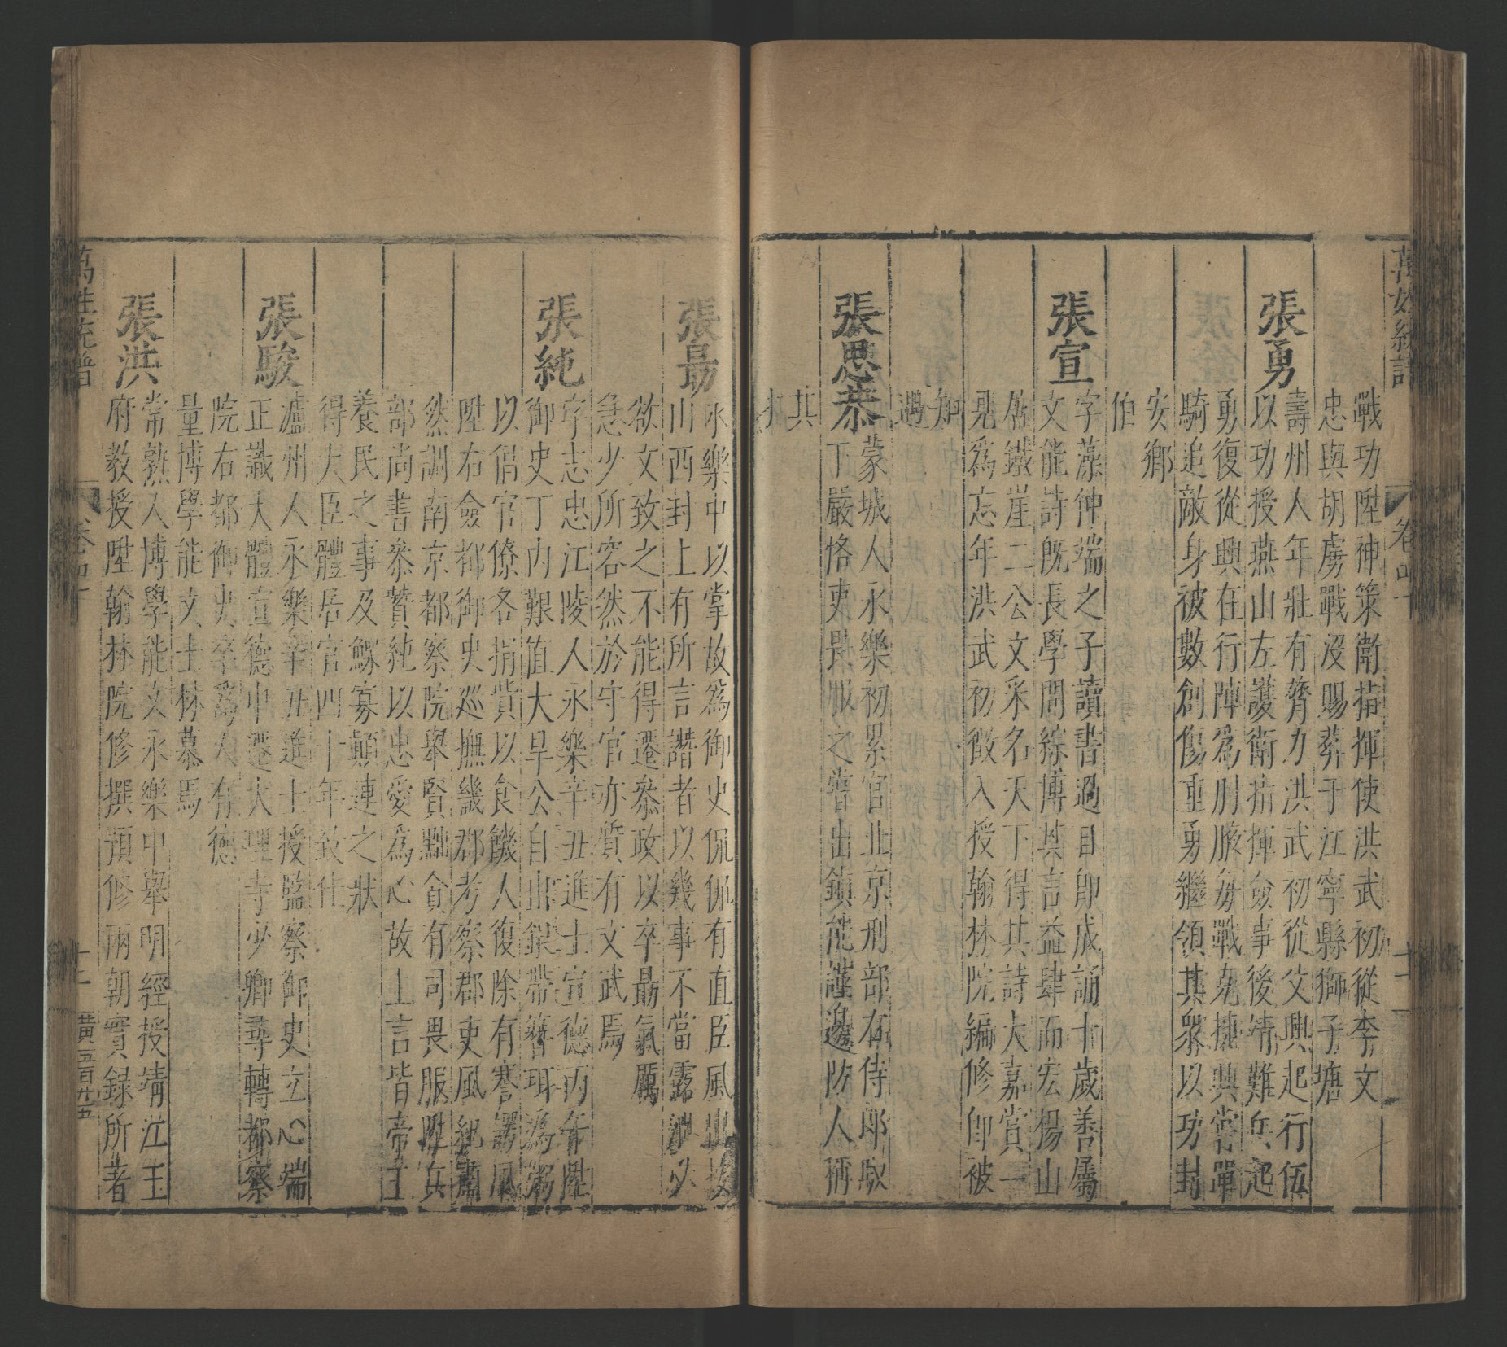 萬姓統譜
卷四十
十一
戰功陞神策衛指揮使洪武初從李文
忠與胡虜戰沒賜葬于江寧縣獅子塘
張勇
壽州人年壯有膂力洪武初從父興起行伍
以功授燕山左護衛指揮僉事後靖難兵起
勇復從興在行陣為肘腋每戰克捷興嘗單
騎追敵身被數創傷重勇繼領其衆以功封
安鄉
伯
張宣
字藻仲端之子讀書過目即成誦十歲善屬
文能詩既長學問綜博其言益肆而宏楊山
居鐵崖二公文采名天下得其詩大嘉賞一
見為忘年洪武初徵入授翰林院編修即被
張思恭
蒙城人永樂初累官北京刑部右侍郎馭
下嚴恪吏畏服之嘗出鎮花謹邊防人稱
其
張勗
永樂中以掌故為御史侃侃有直臣風出按
山西封上有所言譖者以幾事不當露泄以
欲文致之不能得遷叅政以卒勗氣厲
急少所容然於守官亦質有文武焉
張純
字志忠江陵人永樂辛丑進士宣德丙午陞
御史丁內艱值大旱公自出銀帶簪珥為粥
以倡官僚各捐貲以食饑人復除有謇諤風
陞右僉都御史巡撫畿郡考察郡吏風紀肅
然調南京都察院舉賢黜貪有司畏服陞兵
部尚書叅贊純以忠愛為心故上言皆帝王
養民之事及鰥寡顛連之狀
得大臣體居官四十年致仕
張駿
瀘州人永樂辛丑進士授監察御史立心端
正識大體宣德中遷大理寺少卿尋轉都察
院右都御史卒為人有德
量博學能文士林慕焉
張洪
常熟人博學能文永樂中舉明經授靖江王
府教授陞翰林院修撰預修兩朝實録所著
萬姓統譜
卷四十
十二
黃五百廿五